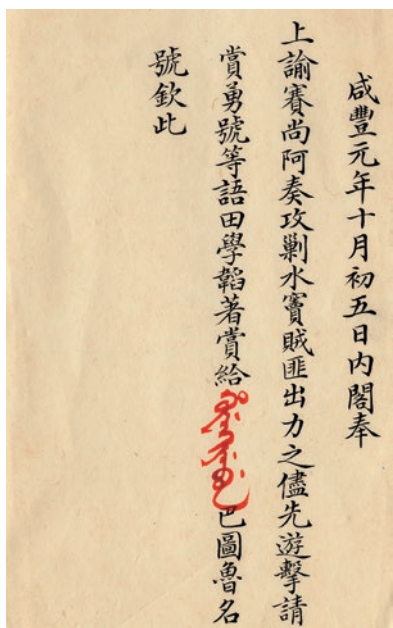 咸豐元年十月初五日內閣奉
上諭賽尚阿奏攻剿水竇賊匪出力之儘先遊擊請
賞勇號等語田學韜著賞給巴圖魯名
號欽此